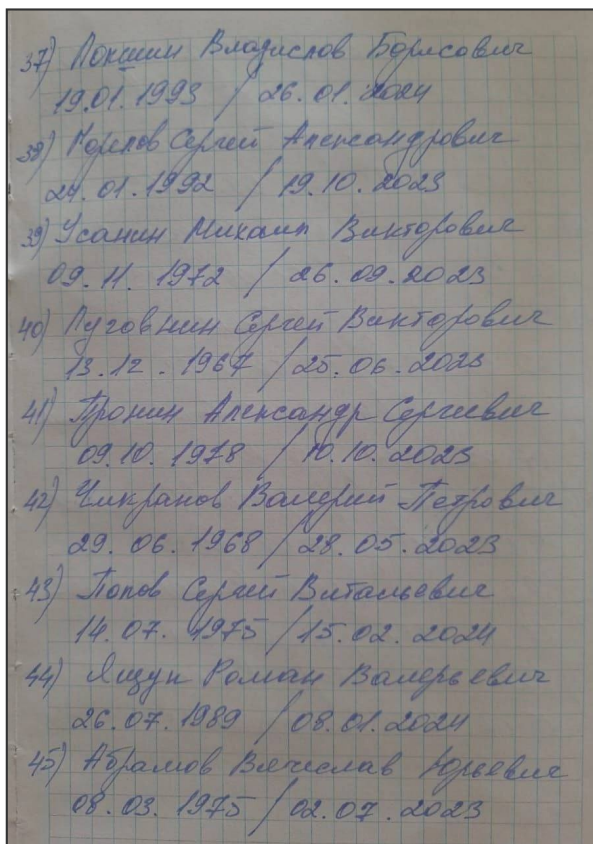 37) Локшин Владислов Борисович
19.01.1993 / 26.01.2024
38) Горелов Сергей Александрович
24.01.1992 / 19.10.2023
39) Усанин Михаил Викторович
09.11.1972 / 26.09.2023
40) Луговнин Сергей Викторович
13.12.1967 / 25.06.2023
41) Пронин Александр Сергеевич
09.10.1978 / 10.10.2023
42) Чикранов Валерий Петрович
29.06.1968 / 28.05.2023
43) Попов Сергей Витальевич
14.07.1975 / 15.02.2024
44) Ящук Роман Валерьевич
26.07.1989 / 08.01.2024
45) Абрамов Вячеслав Юрьевич
08.03.1975 / 02.07.2023